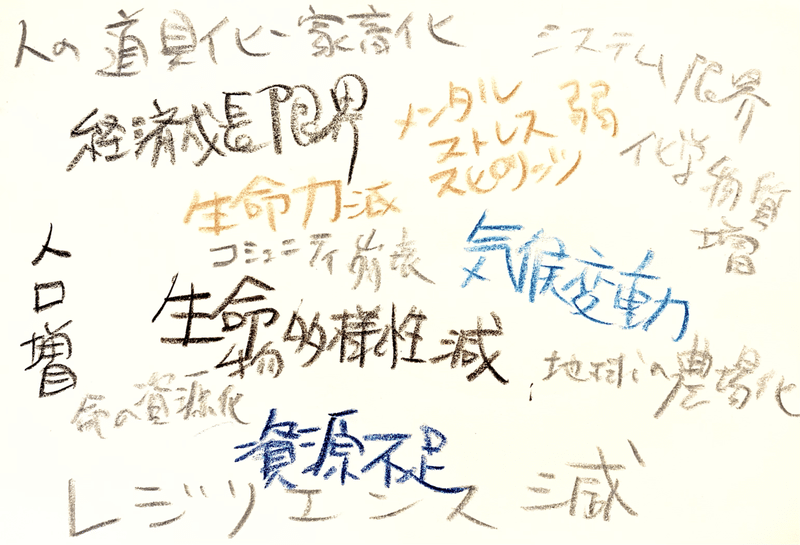 人の道具化、家畜化
システム限界
経済成長限界
メンタル弱
ストレス
スピリッツ
化学物質
増
生命力減
コミュニティ崩壊
気候変動
人口増
生命
物多様性減
地球の農場化
命の資源化
資源不足
レジリエンス減